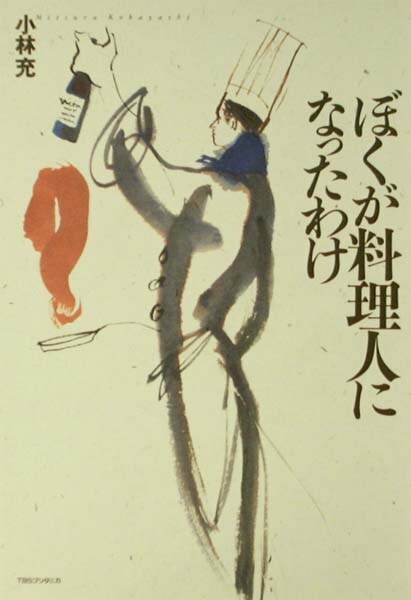 ぼくが料理人に
なったわけ
小林充
Mitsuru Kobayashi
TBSブリタニカ